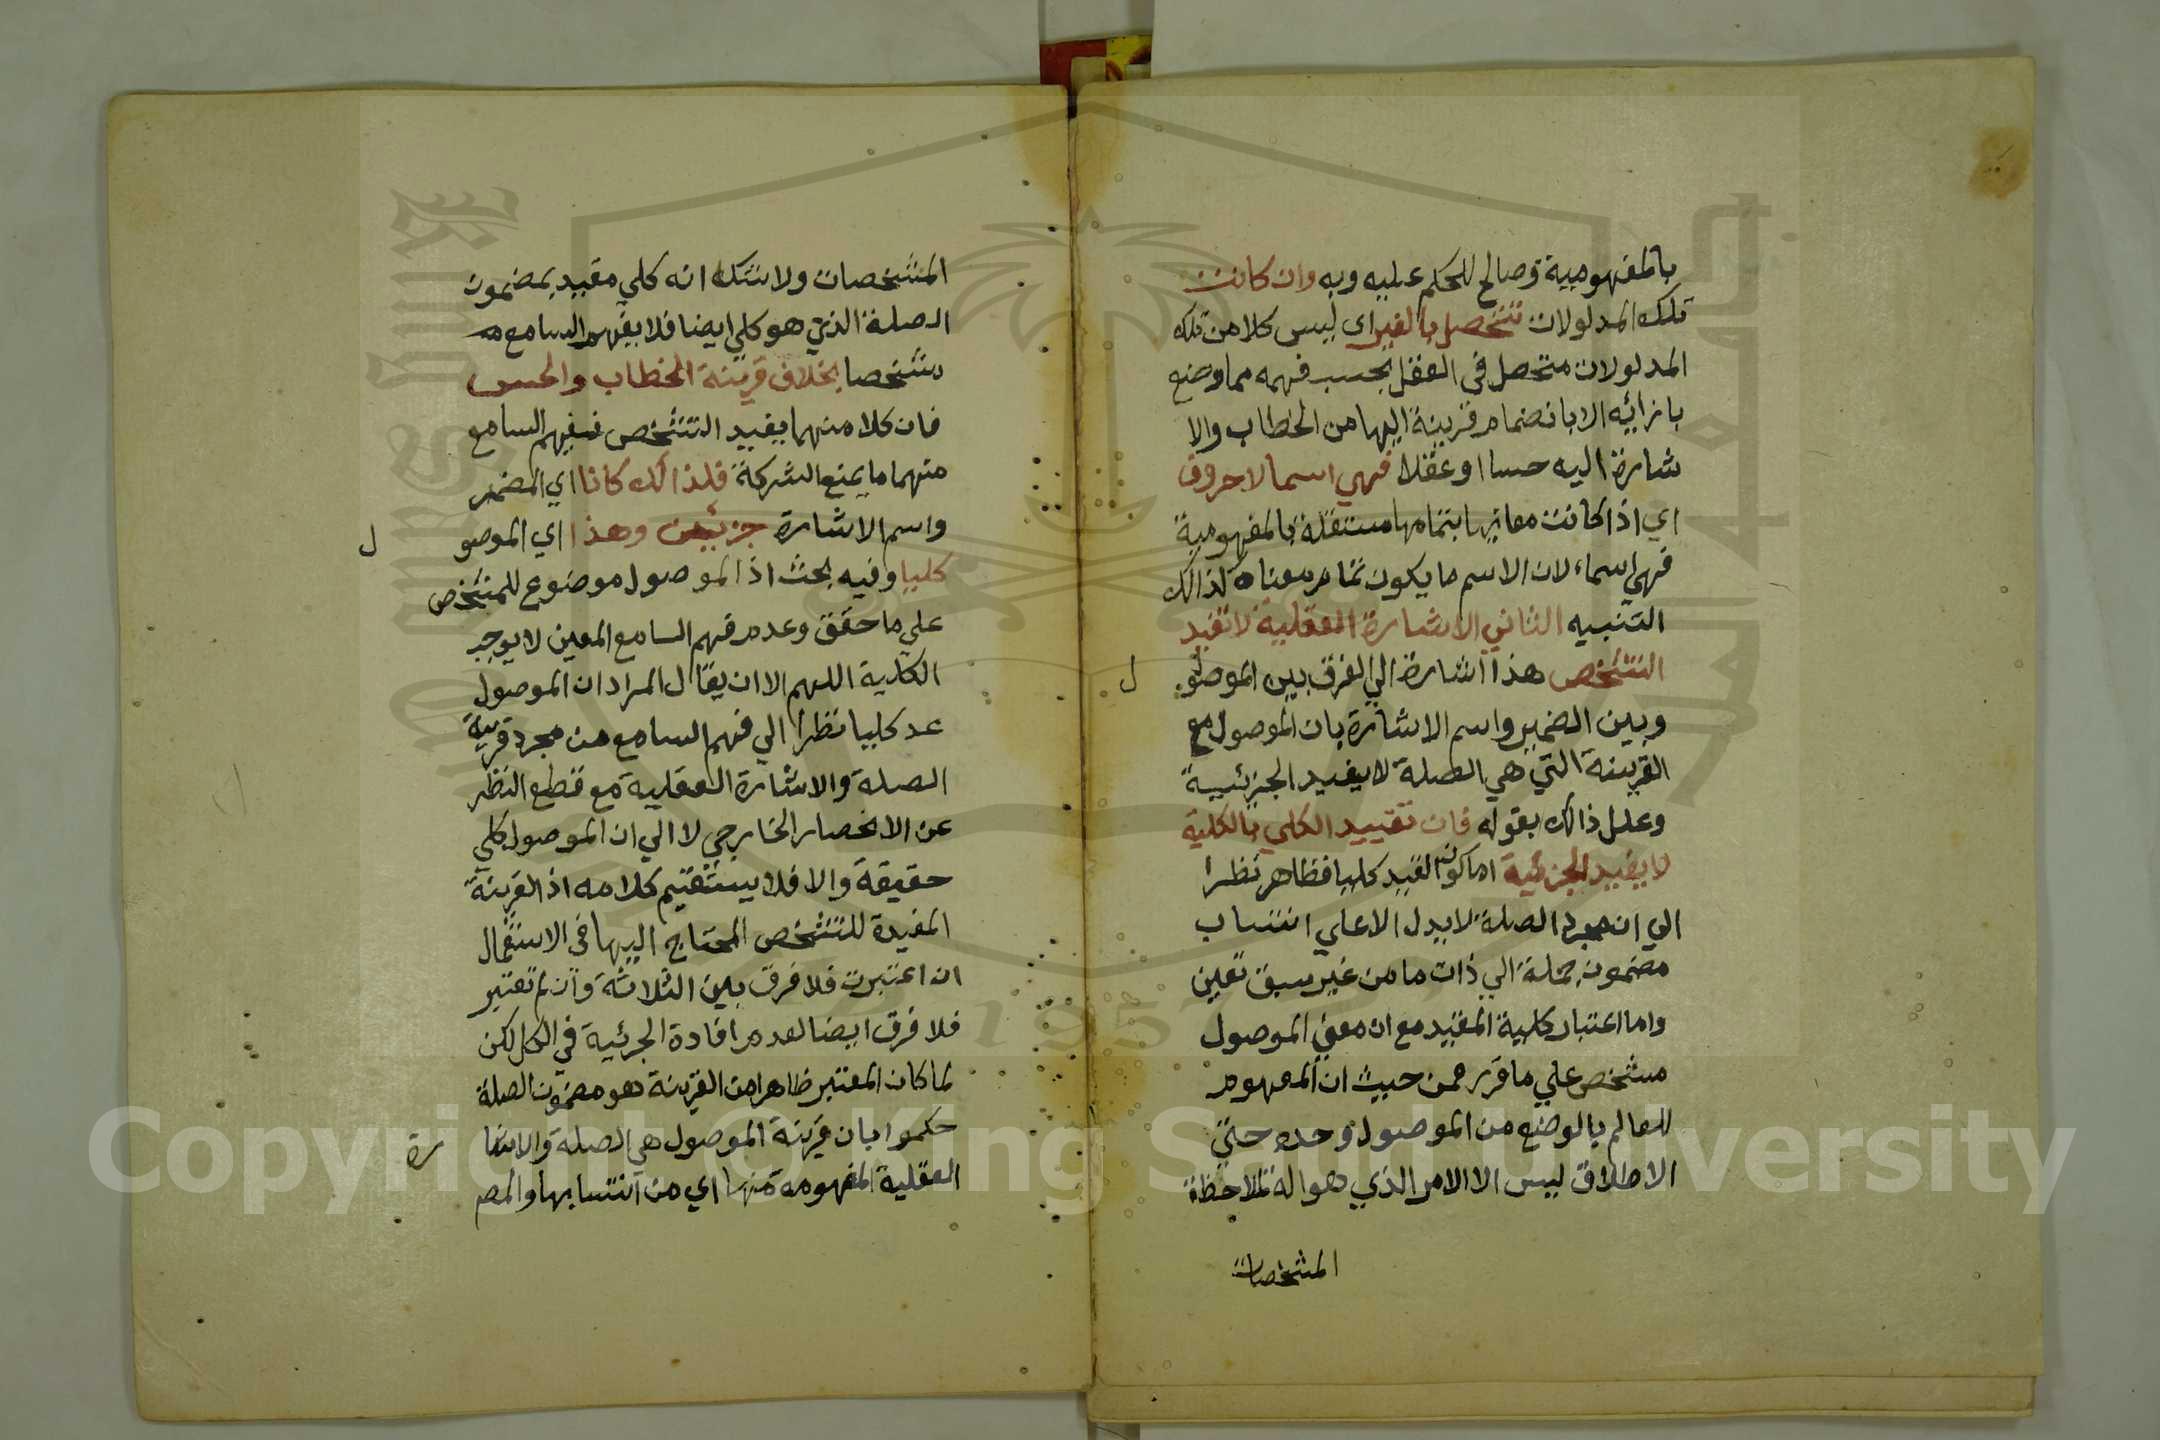 بالمفهومية وصالح للحكم عليه وبه وان كانت
تلك المدلولات تتحصل بالغير اي ليس كلا من تلك
المدلولات متحصل في العقل بحسب فهمه مما وضع
بازائه الا بانضمام قرينة اليها من الخطاب والا
شارة اليه حسا او عقلا فهي اسما لا حروف
اي اذا كانت معانيها بتمامها مستقلة بالمفهومية
فهي اسماء لان الاسم ما يكون تمام معناه كذالك
التنبيه الثاني الاشارة العقلية لا تفيد
التشخص هذا اشارة الي الفرق بين الموصو ل
وبين الضمير واسم الاشارة بان الموصول مع
القرينة التي هي الصلة لا يفيد الجزئية
وعلل ذالك بقوله فان تقييد الكلي بالكلية
لا يفيد الجزئية اما كون القيد كليا فظاهر نظرا
الي ان مجرد الصلة لا يدل الا علي انتساب
مضمون جملة الي ذات ما من غير سبق تعين
واما اعتبار كلية المقيد مع ان معني الموصول
مشخص علي ما قرر فمن حيث ان المفهوم
للعالم بالوضع من الموصول وحده حتي
الاطلاق ليس الا الامر الذي هو الة لملاحظة
المشخصات
المشخصات ولا شك انه كلي مقيد بمضمون
الصلة الذي هو كلي ايضا فلا يفهم السامع منه
مشخصا بخلاف قرينة الخطاب والحس
فان كلا منهما يفيد التشخص فيفهم السامع
منهما ما يمنع الشركة فلذالك كانا اي المضمر
واسم الاشارة جزئيين وهذا اي الموصو ل
كليا وفيه بحث اذ الموصول موضوع للمشخص
علي ما حقق وعدم فهم السامع المعين لا يوجب
الكلية اللهم الا ان يقال المراد ان الموصول
عد كليا نظرا الي فهم السامع من مجرد قرينة
الصلة والاشارة العقلية مع قطع النظر
عن الانحصار الخارجي لا الي ان الموصول كلي
حقيقة والا فلا يستقيم كلامه اذ القرينة
المفيدة للتشخص المحتاج اليها في الاستعمال
ان اعتبرت فلا فرق بين الثلاثة وان لم تعتبر
فلا فرق ايضا لعدم افادة الجزئية في الكل لكن
لما كان المعتبر ظاهرا من القرينة هو مضمون الصلة
حكموا بان قرينة الموصول هي الصلة والاشا رة
العقلية المفهومة منها اي من انتسابها والمصـ
Copyright © King Saud University
1957